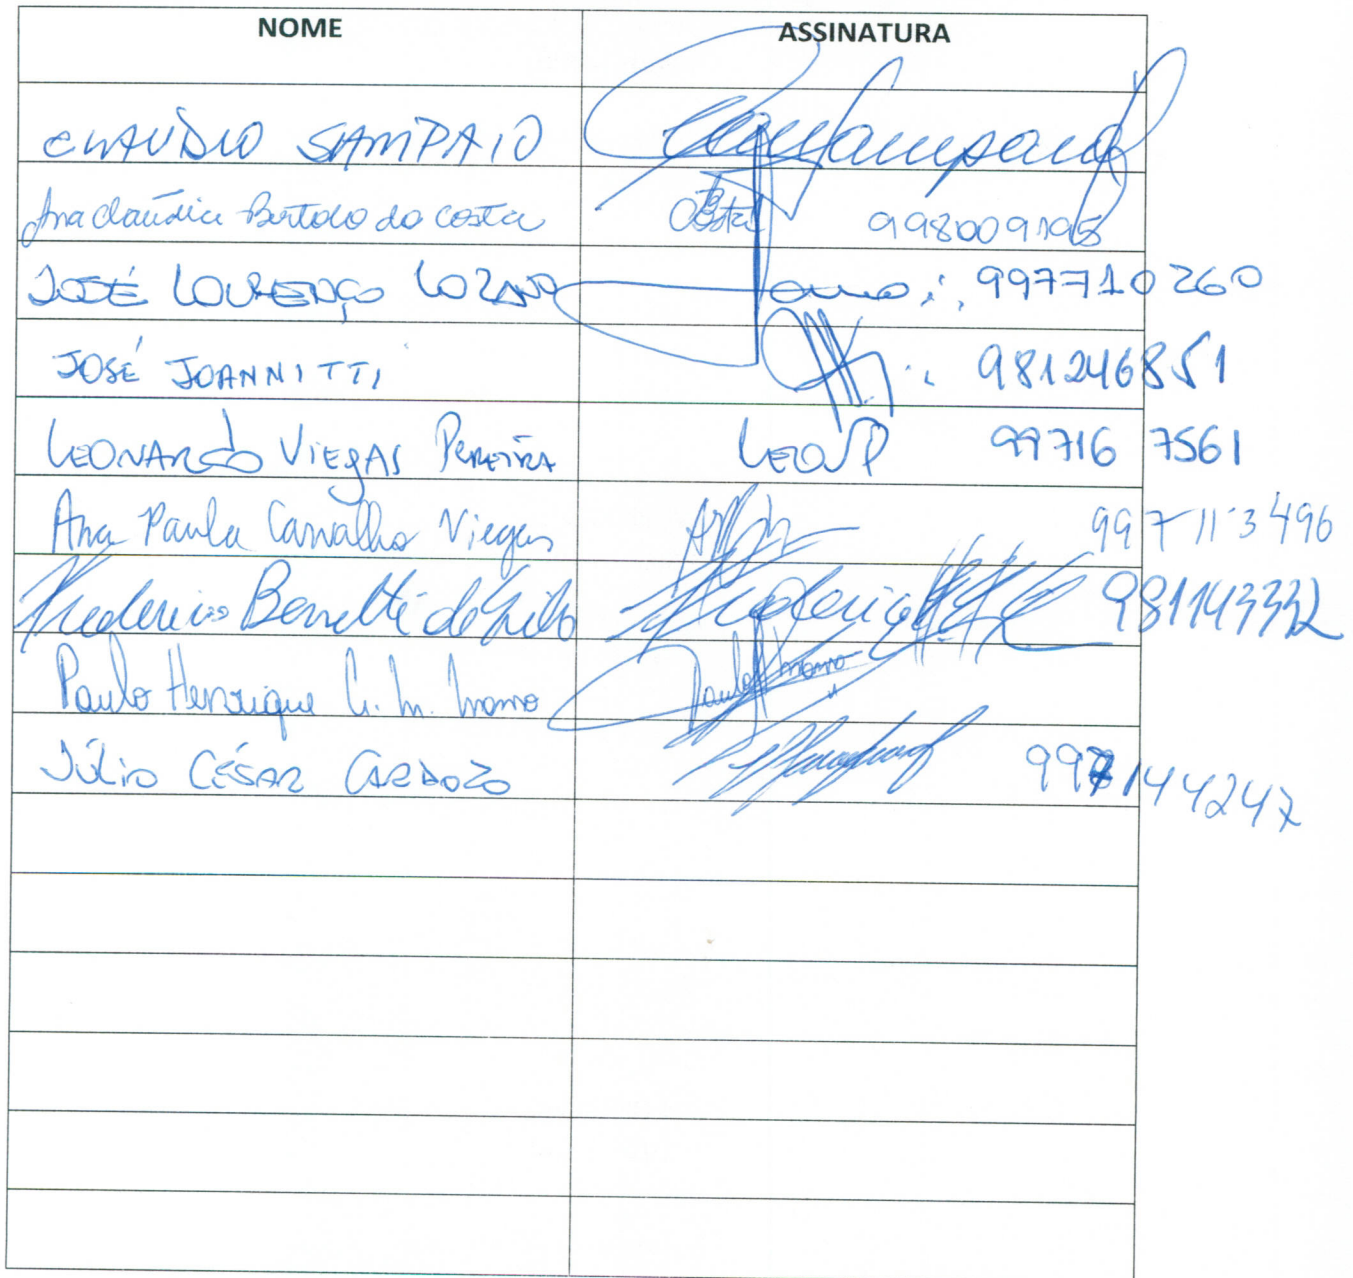 NOME ASSINATURA
CLAUDIO SAMPAIO
Ana Claúdia Bertolo da Costa Costa 998009198
JOSÉ LOURENÇO LOZANO 997710260
JOSÉ JOANNITTI 981246851
LEONARDO VIEGAS PEREIRA LEOVP 99716 7561
Ana Paula Carvalho Viegas 997113496
Frederico 981143332
Paulo Henrique Paulo
JÚLIO CÉSAR CARDOZO 997144247